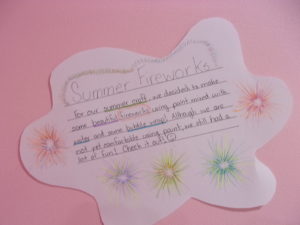 Summer Fireworks
For our summer craft, we decided to make
some beautiful fireworks using paint mixed with
water and some bubble wrap! Although we are
not yet comfortable using paint, we still had a
lot of fun! Check it out